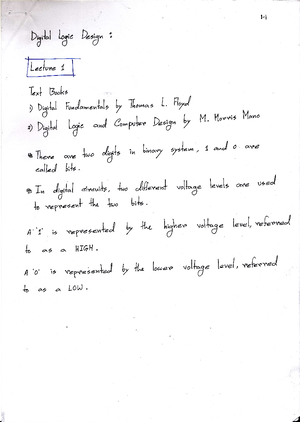 1-1
Digital Logic Design :
Lecture 1
Text Books
1) Digital Fundamentals by Thomas L. Floyd
2) Digital Logic and Computer Design by M. Morris Mano
* There are two digits in binary system, 1 and 0 are
called bits.
* In digital circuits, two different voltage levels are used
to represent the two bits.
A '1' is represented by the higher voltage level, referred
to as a HIGH.
A '0' is represented by the lower voltage level, referred
to as a LOW.